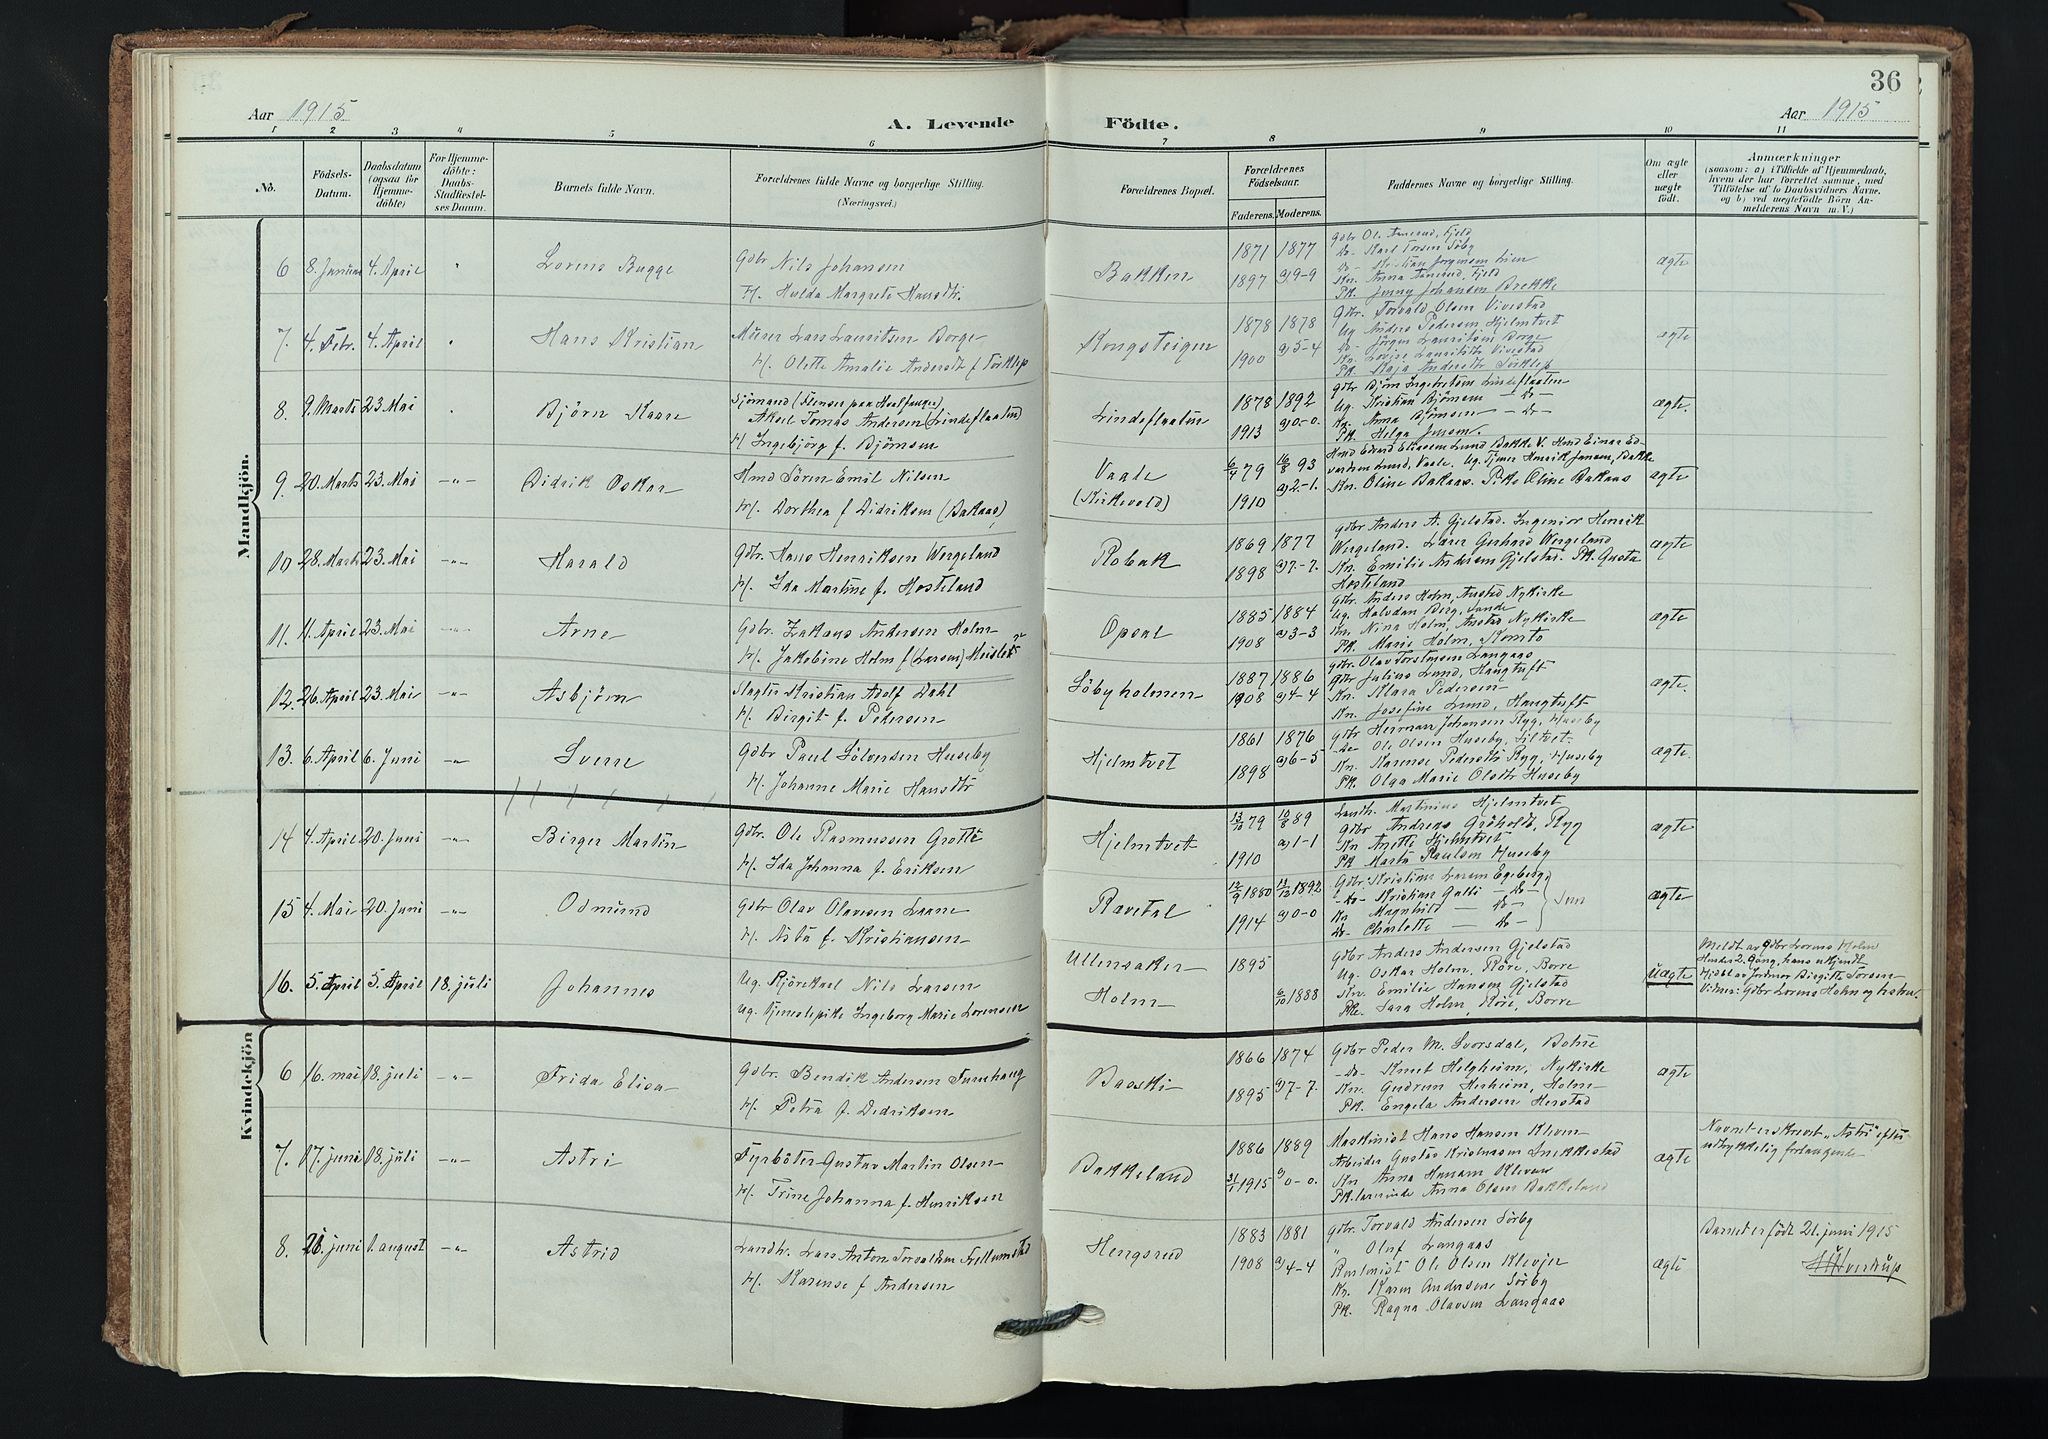 36
Aar 1915 A. Levende Födte. Aar 1915
1 2 3 4 5 6 7 8 9 10 11
No.
Födsels-Datum.
Daabsdatum (ogsaa for Hjemme-döbte)
For Hjemme-döbte: Daabs-Stadfæstel-ses Datum.
Barnets fulde Navn.
Forældrenes fulde Navne og borgerlige Stilling.
(Næringsvei.)
Forældrenes Bopæl.
Forældrenes Födselsaar.
Faderens. Moderens.
Faddernes Navne og borgerlige Stilling.
Om ægte eller uægte födt.
Anmærkninger
(saasom: a) i Tilfælde af Hjemmedaab,
hvem der har forrettet samme, med
Tilföielse af to Daabsvidners Navne,
og b) ved uægtefödte Börn An-
melderens Navn m. V.)
Mandkjön.
6 8. Januar 4. April Lorens Bugge
Gdbr Nils Johansen
H. Hulda Margrete Hansdtr.
Bakken
1871 1877
1897 a) 9-9
Do- Karl Torsen Söby
Kn. Anna Aanerud, Fjeld
Pk. Jenny Johansen Brekke
ægte
7. 4. Febr. 4. April Hans Kristian
Murer Lars Lauritsen Borge
H. Olette Amalie Andersdt f Torklep
Kongsteigen
1878 1878
1900 a) 5-4
Gdbr. Torvald Olsen Vivestad
Ug Anders Pedersen Hjelmtvet
Do- Jörgen Lauritsen Borge
Pk. Maja Andersdtr Torklep
ægte
8. 9. Marts 23. Mai Björn Kaare
Sjömand (Flenser paa Hvalfanger)
Aksel Tomas Andersen (Lindeflaaten)
H Ingebjörg f. Björnsen
Lindeflaaten
1878 1892
1913 a) 0-0.
Gdbr Björn Ingebretsen Lindeflaaten
Ug. Kristian Björnsen - Do -
Kn. Anna Björnsen - Do -
Pk. Helga Jensen.
ægte.
9. 20. Marts 23. Mai -"- Didrik Oskar
Hmd Sören Emil Nilsen
H. Dorthea f Didriksen (Bakaas)
Vaale
(Kirkevold)
6/4 79 16/8 93
1910 a) 2-1.
Hmd Edvard Eliasen Lund Bakke V. Hmd Einar Ed-
vardsen Lund, Vaale. Ug. Tjener Henrik Jansen, Bakke
Kn. Oline Bakaas. Pike Oline Bakaas
ægte
10 28. Marts 23. Mai -"- Harald
Gdbr. Hans Henriksen Wergeland
H. Ida Martine f. Hosteland
Robak
1869 1877
1898 a) 7-7.
Gdbr Anders A. Gjelstad. Ingeniör Henrik
Wergeland. Lærer Gerhard Wergeland
Kn. Emilie Andersen Gjelstad. Pk. Gusta
Hosteland
ægte
11. 11. April 23. Mai -"- Arne
Gdbr. Zakaus Andersen Holm
H. Jakobine Holm f (Larsen)
Opsal
1885 1884
1908 a) 3-3
Gdbr. Anders Holm, Nykirke
Ug. Halvdan Berg, Sande
Kn. Nina Holm, Nykirke
Pk. Marie Holm, Komto
ægte
12. 26. April 23. Mai -"- Asbjörn
Slagter Kristian Adolf Dahl
H. Birgit f. Petersen
Söbyholmen
1887 1886
1908 a) 4-4
Gdbr. Olav Torstensen Langaas
Gdbr Julius Lund, Haugtuft
Kn. Klara Pedersen
Kn. Josefine Lund, Haugtuft
ægte.
13. 6. April 6. Juni -"- Sverre
Gdbr Paul Sölversen Huseby
H. Johanne Marie Hansdtr
Hjelmtvet
1861 1876
1898 a) 6-5
Gdbr Herman Johansen Ryg, Huseby
-Do- Ole Olsen Huseby,
Kn. Karense Pedersdtr Ryg, Huseby
Pk. Olga Marie Olsdtr Huseby
ægte.
14 4. April 20. Juni -"- Birger Martin
Gdbr. Ole Rasmussen Grotte
H. Ida Johanna f. Eriksen
Hjelmtvet
13/10 79 10/8 89
1910 a) 1-1
Landh. Martinius Hjelmtvet
Gdbr Andreas Gröholdt, Ryg
Kn Anette Hjelmtvet
Pk Marta Paulsen Huseby
ægte
15 4. Mai 20. Juni -"- Odmund
Gdbr Olav Olavsen Laane
H. Asta f. Kristiansen
Ravetal
12/9 1880 11/12 1892
1914 a) 0-0
Gdbr. Kristian Larsen Egeberg
-Do- Kristian Galli - Do -
Kn Magnhild - Do -
Do- Charlotte - Do -
ægte
16. 5. April 5. April 18. juli Johannes
Ug. Kjörekarl Nils Larsen
Ug. Tjenestepike Ingeborg Marie Lorensen
Ullensaker
Holm
1895
6/10 1888
Gdbr Anders Andersen Gjelstad
Ug. Oskar Holm, Röre, Borre
Kn. Emilie Hansen Gjelstad
Pke. Sara Holm, Röre, Borre
Uægte
Meldt av Gdbr Lorens Holm
Hendes 2. Gang, hans ukjendt
Hjdbt av Jordmor Birgitte Torsen
Vidner: Gdbr Lorens Holm og hustru.
Kvindekjön
6 16. mai 18. juli -"- Frida Elisa
Gdbr. Bendik Andersen Furuhaug
H. Petra f. Didriksen
Baaski
1866 1874
1895 a) 7-7.
Gdbr Peder M. Svorsdal, Botne
-Do- Knut Helgheim, Nykirke
Kn. Gudrun Herheim, Holm
Pk. Engela Andersen Herstad
ægte
7. 17. juni 18. juli -"- Astri
Fyrböter Gustav Martin Olsen
H. Trine Johanna f. Henriksen
Bakkeland
1886 1889
31/1 1915 a) 0-0.
Maskinist Hans Hansen Kleven
Arbeider Gustav Kristiansen Snekkestad
Kn Anna Hansen Kleven
Pk. lærerinde Anna Olsen Bakkeland
ægte
Navnet er skrevet "Astri" efter
udtrykkelig forlangende
8. 21. juni 1. august -"- Astrid
Landhr. Lars Anton Torvaldsen Fellumstad
H. Karense f Andersen
Hengsrud
1883 1881
1908 a) 4-4
Gdbr. Torvald Andersen Sörby
" Oluf Langaas
Ole Olsen Klevjer
Kn. Karen Andersen Sörby
Pk. Ragna Olavsen Langaas
ægte
Barnet er födt 21. juni 1915